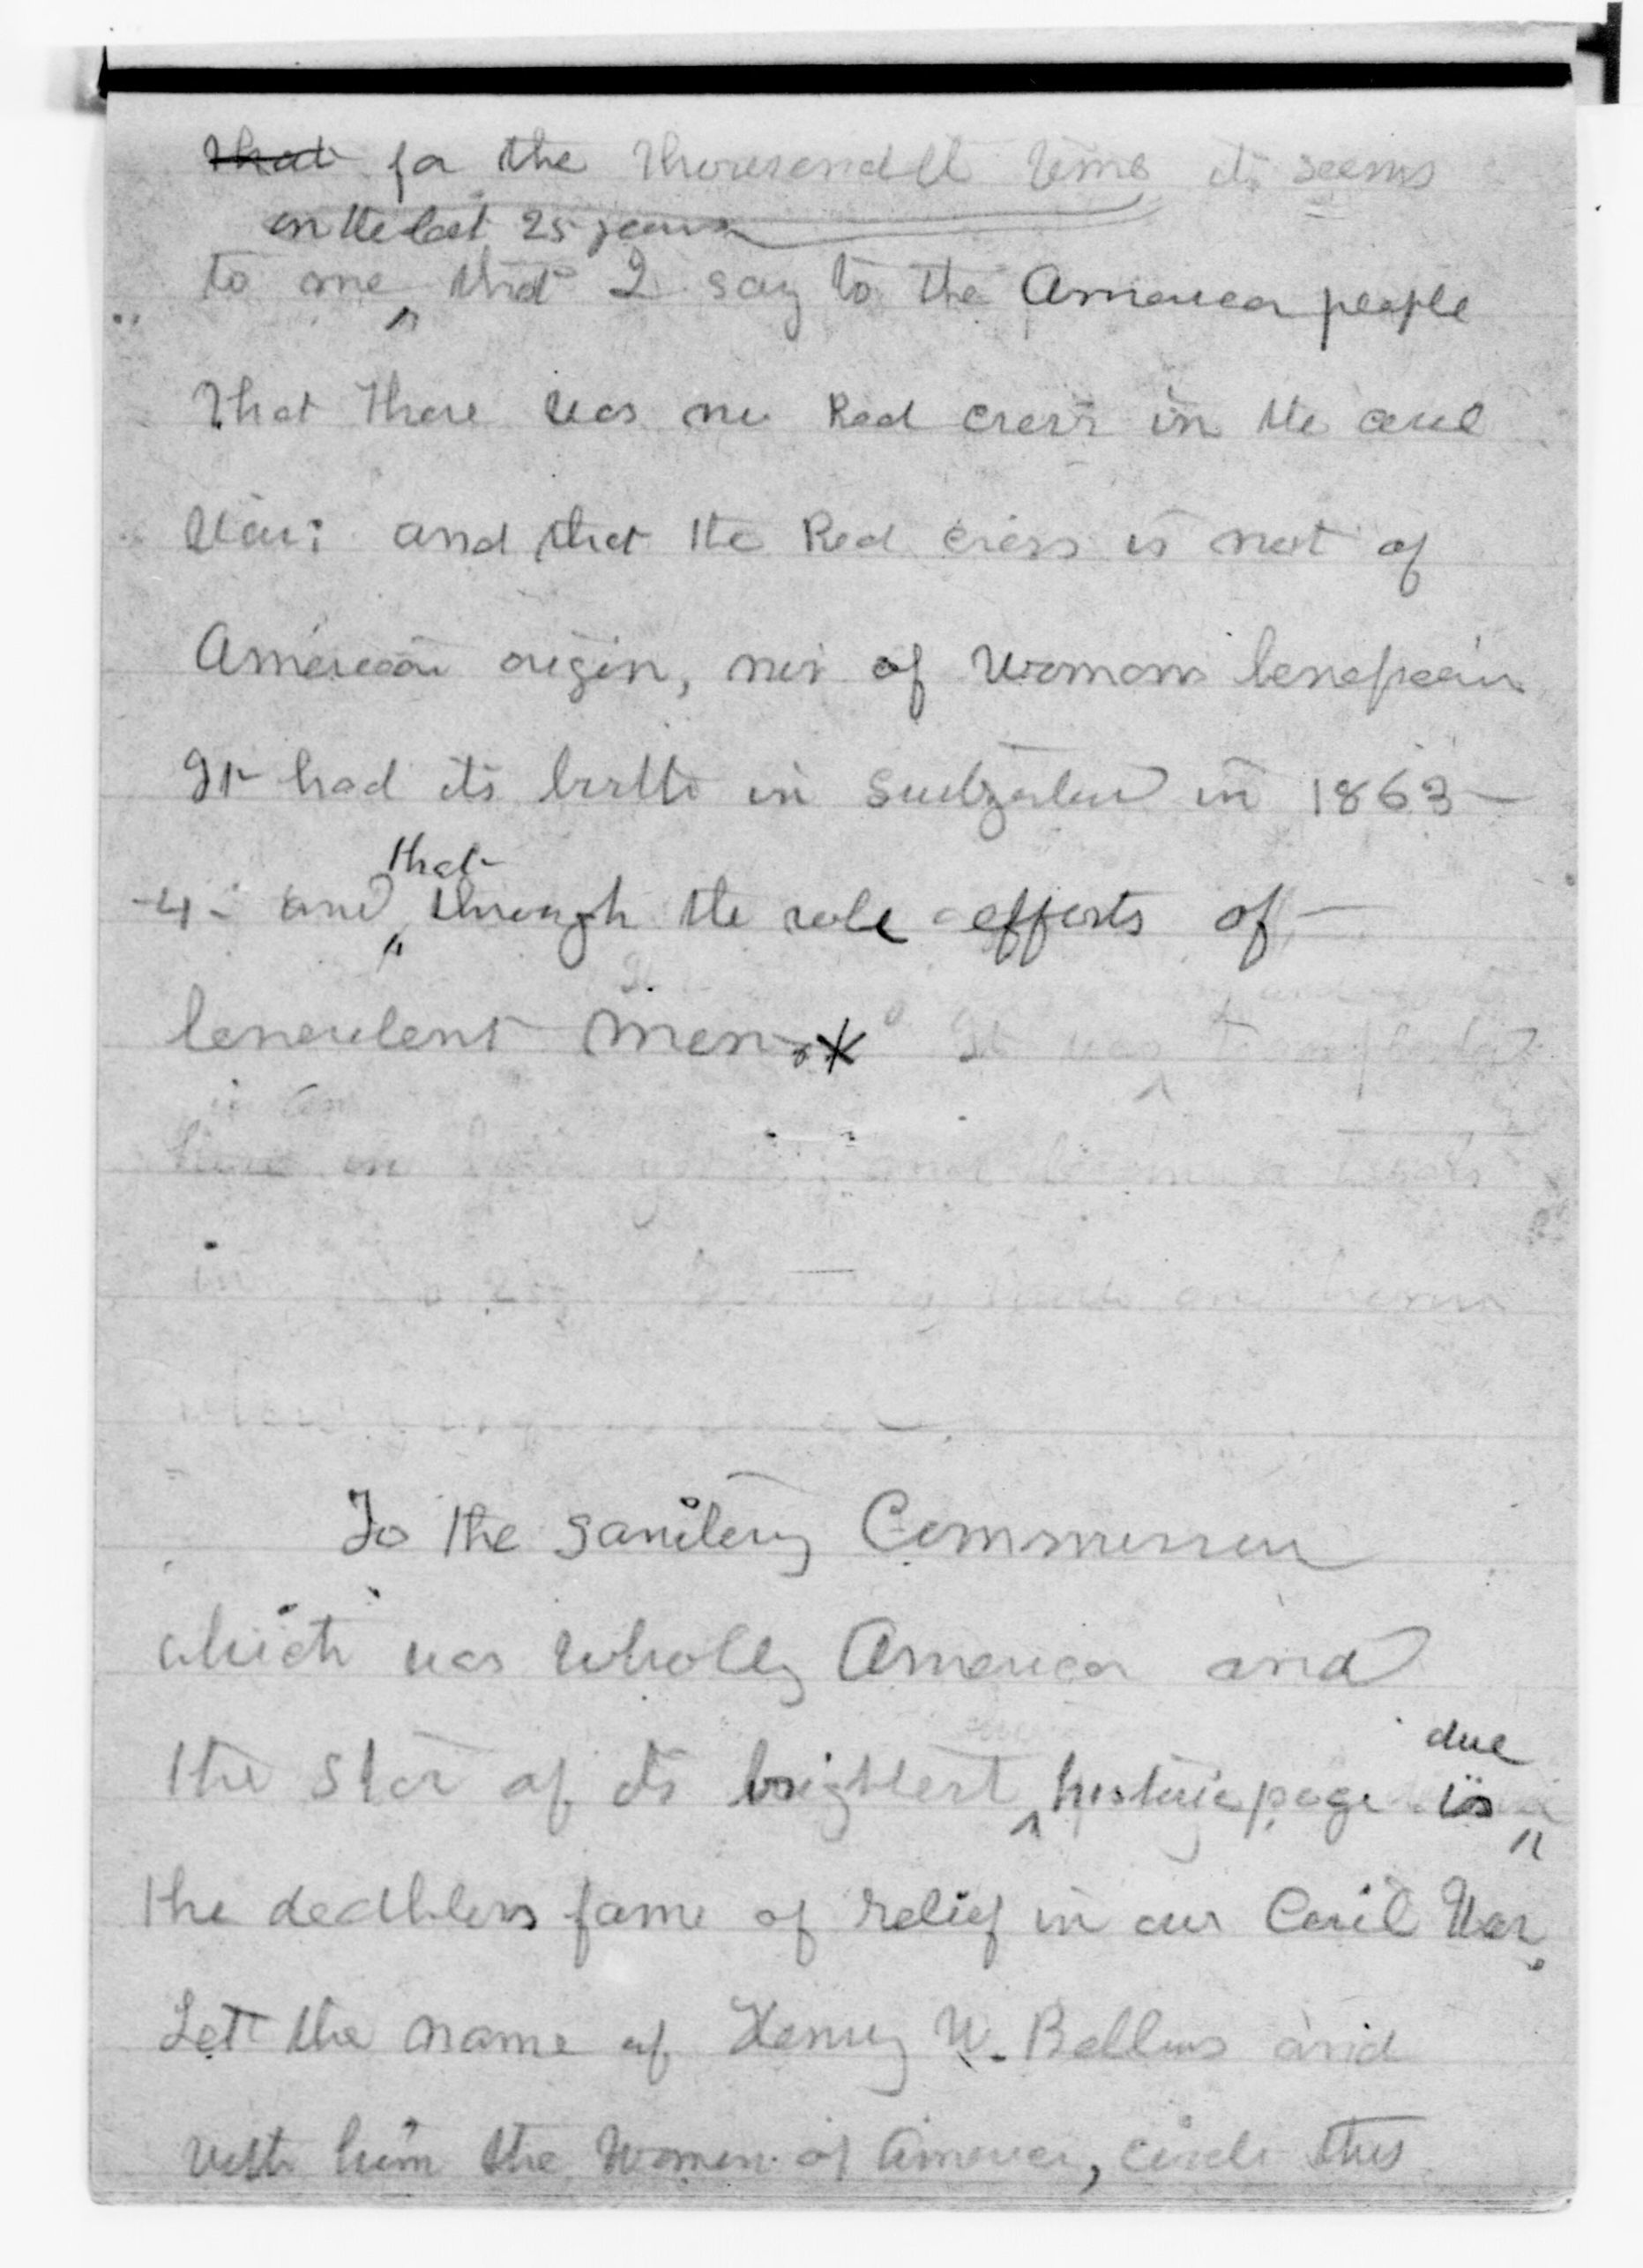 that for the thousandth time it seems
in the last 25 years
to me that I say to the American people
that there was no Red Cross in the civil
War; and that the Red Cross is not of
American origin, nor of Womans
It had its birth in Switzerland in 1863-
-4- and that through the sole efforts of -
benevolent men. * It was
To the Sanitary Commission
which was wholly American and
the star of its brightest historic page is due
the deathless fame of relief in our Civil War.
Let the name of Henry W. Bellows and
with him the Women of America, circle this